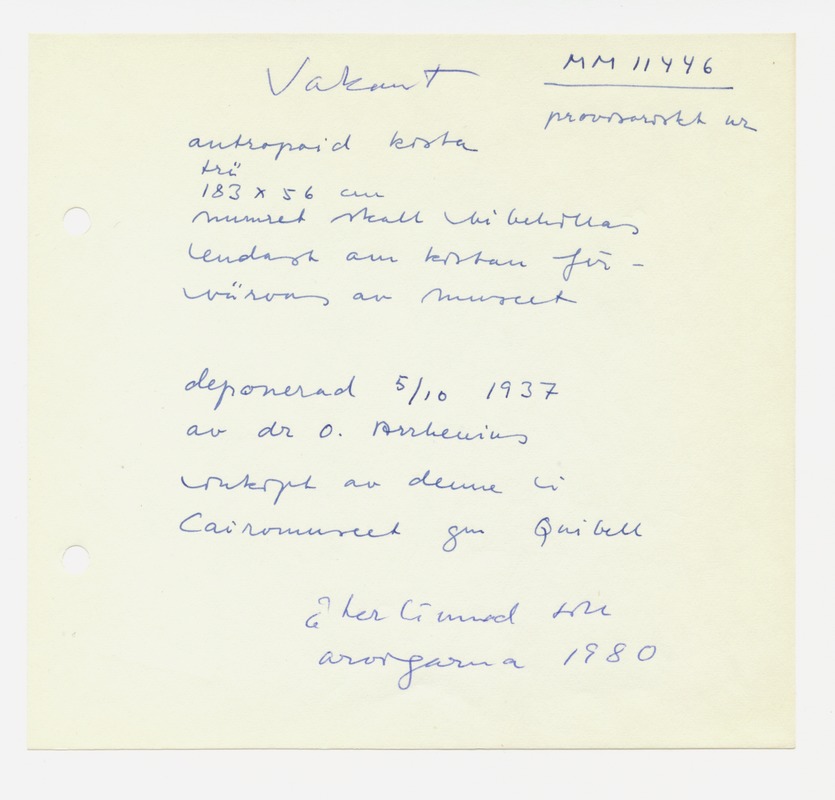 Vakant
MM 11446
provisoriskt nr
antropoid kista
trä
183 x 56 cm
numret skall bibehållas
endast om kistan för-
värvas av museet
deponerad 5/10 1937
av dr O. Arrhenius
inköpt av denne i
Cairomuseet gm Quibell
återlämnad till
arvingarna 1980